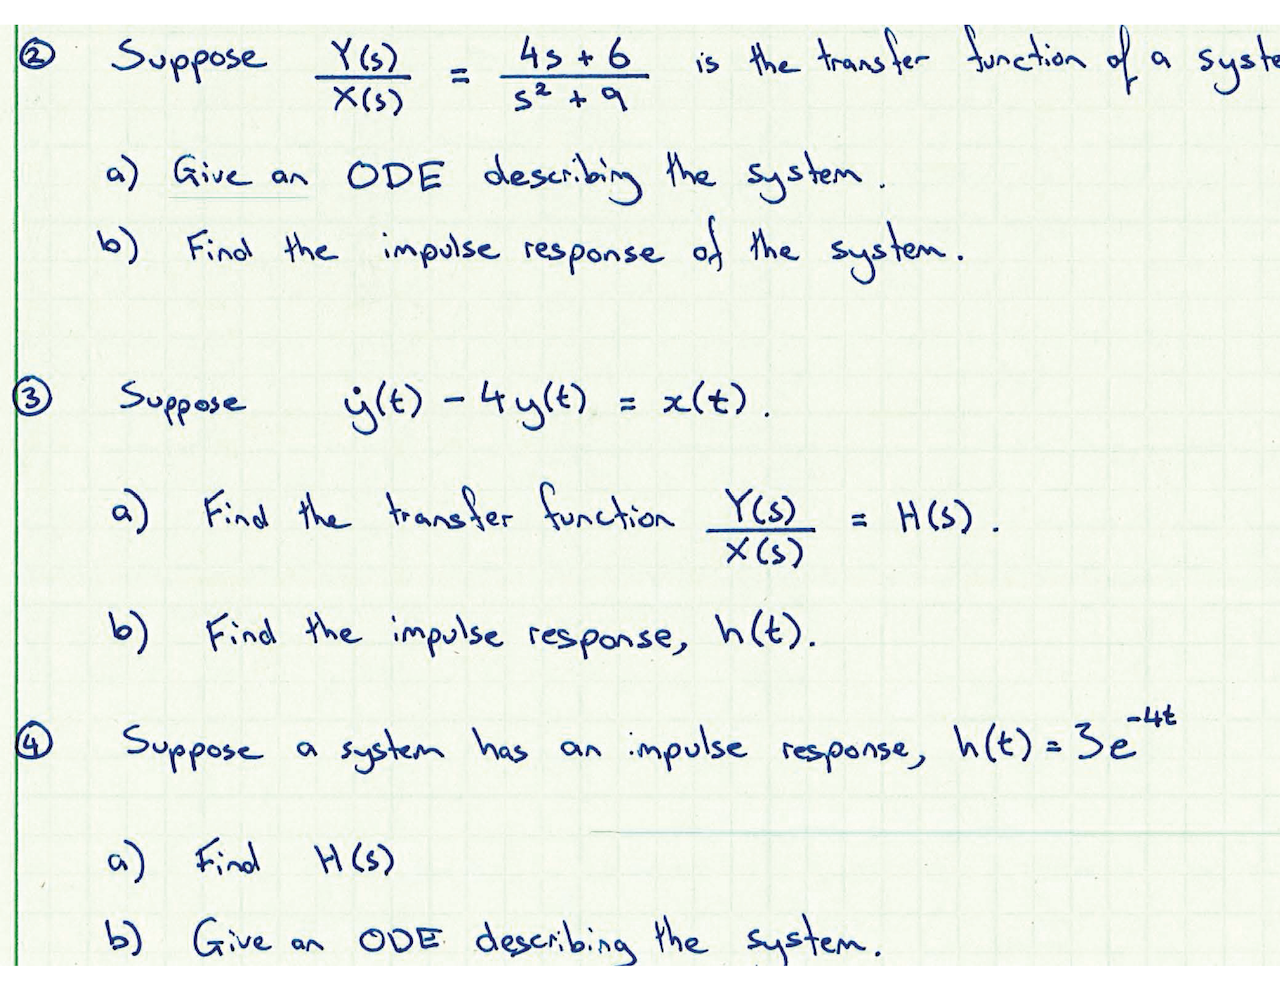 ② Suppose Y(s)/X(s) = (4s + 6)/(s² + 9) is the transfer function of a syste
a) Give an ODE describing the system.
b) Find the impulse response of the system.
③ Suppose ẏ(t) - 4y(t) = x(t).
a) Find the transfer function Y(s)/X(s) = H(s).
b) Find the impulse response, h(t).
④ Suppose a system has an impulse response, h(t) = 3e^{-4t}
a) Find H(s)
b) Give an ODE describing the system.